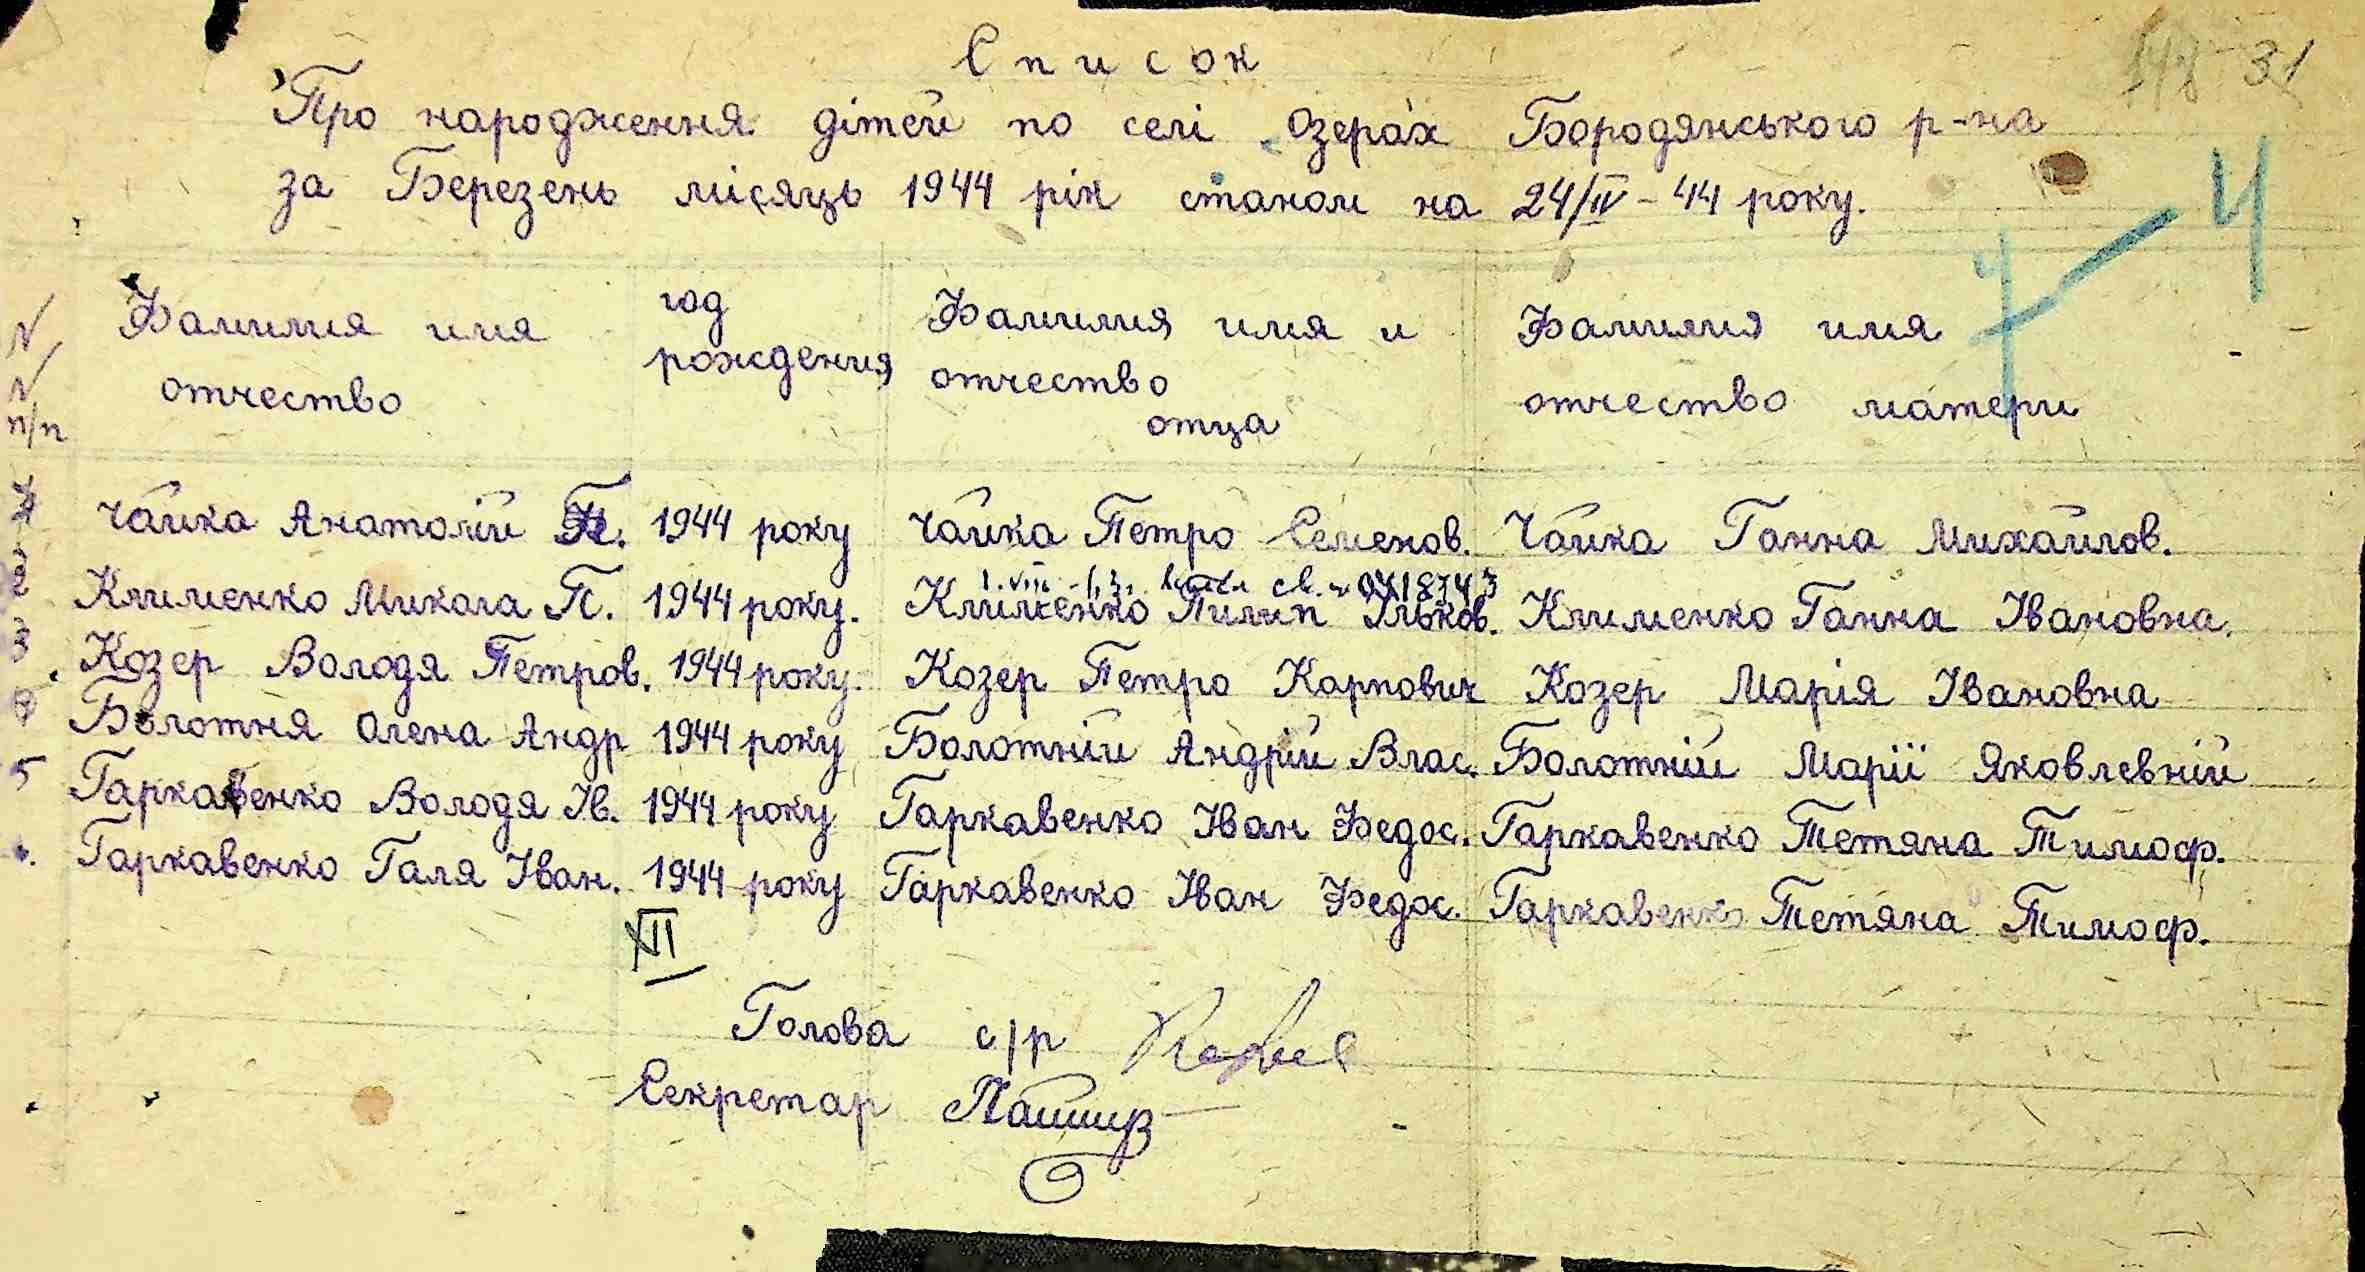 Список
Про народження дітей по селі Озерах Бородянського р-на
за Березень місяць 1944 рік станом на 24/IV-44 року.
31
4
N N п/п Фамилия имя отчество год рождения Фамилия имя и отчество отца Фамилия имя отчество матери
1 Чайка Анатолій П. 1944 року Чайка Петро Семенов. Чайка Ганна Михайлов.
св. 0718743
2 Клименко Микола П. 1944 року. Клименко Пилип Ільков. Клименко Ганна Івановна.
3 Козер Володя Петров. 1944 року. Козер Петро Карпович Козер Марія Івановна
4 Болотня Олена Андр 1944 року Болотній Андрій Влас. Болотній Марії Яковлевній
5 Гаркавенко Володя Ів. 1944 року Гаркавенко Іван Федос. Гаркавенко Тетяна Тимоф.
Гаркавенко Галя Іван. 1944 року Гаркавенко Іван Федос. Гаркавенко Тетяна Тимоф.
XII
Голова с/р
Секретар